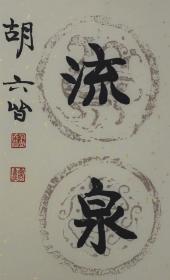 流泉
胡六皆